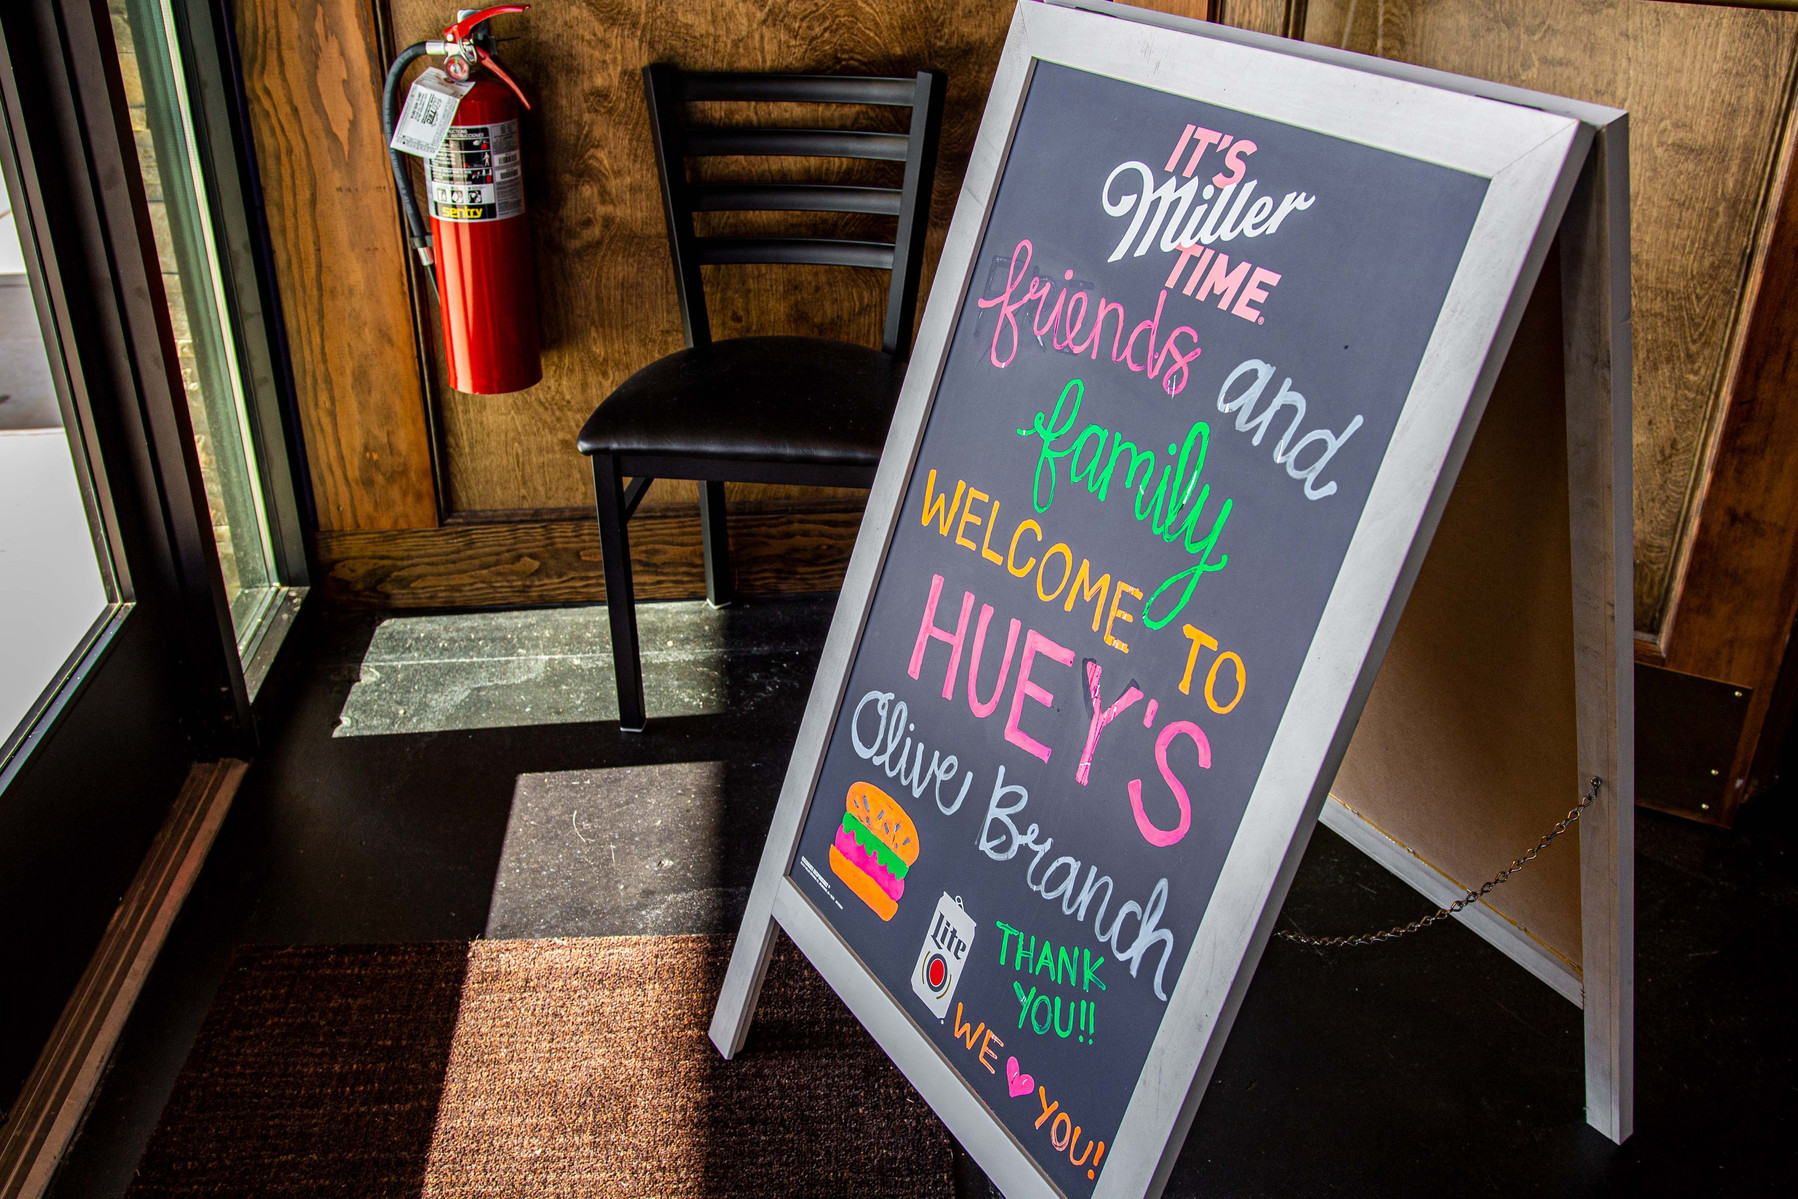 sentry
IT'S
Miller
TIME®
friends and
family
WELCOME TO
HUEY'S
Olive Branch
Lite
THANK
YOU!!
WE ♥ YOU!